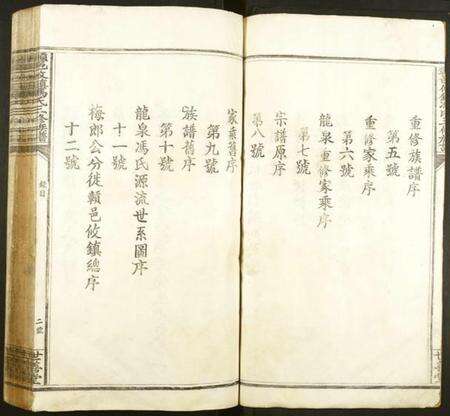 重修族譜序
第五號
重修家乘序
第六號
龍泉重修家乘序
第七號
宗譜原序
第八號
家乘舊序
第九號
族譜舊序
第十號
龍泉馮氏源流世系圖序
十一號
梅郎公分徙穎邑攸鎮總序
十二號